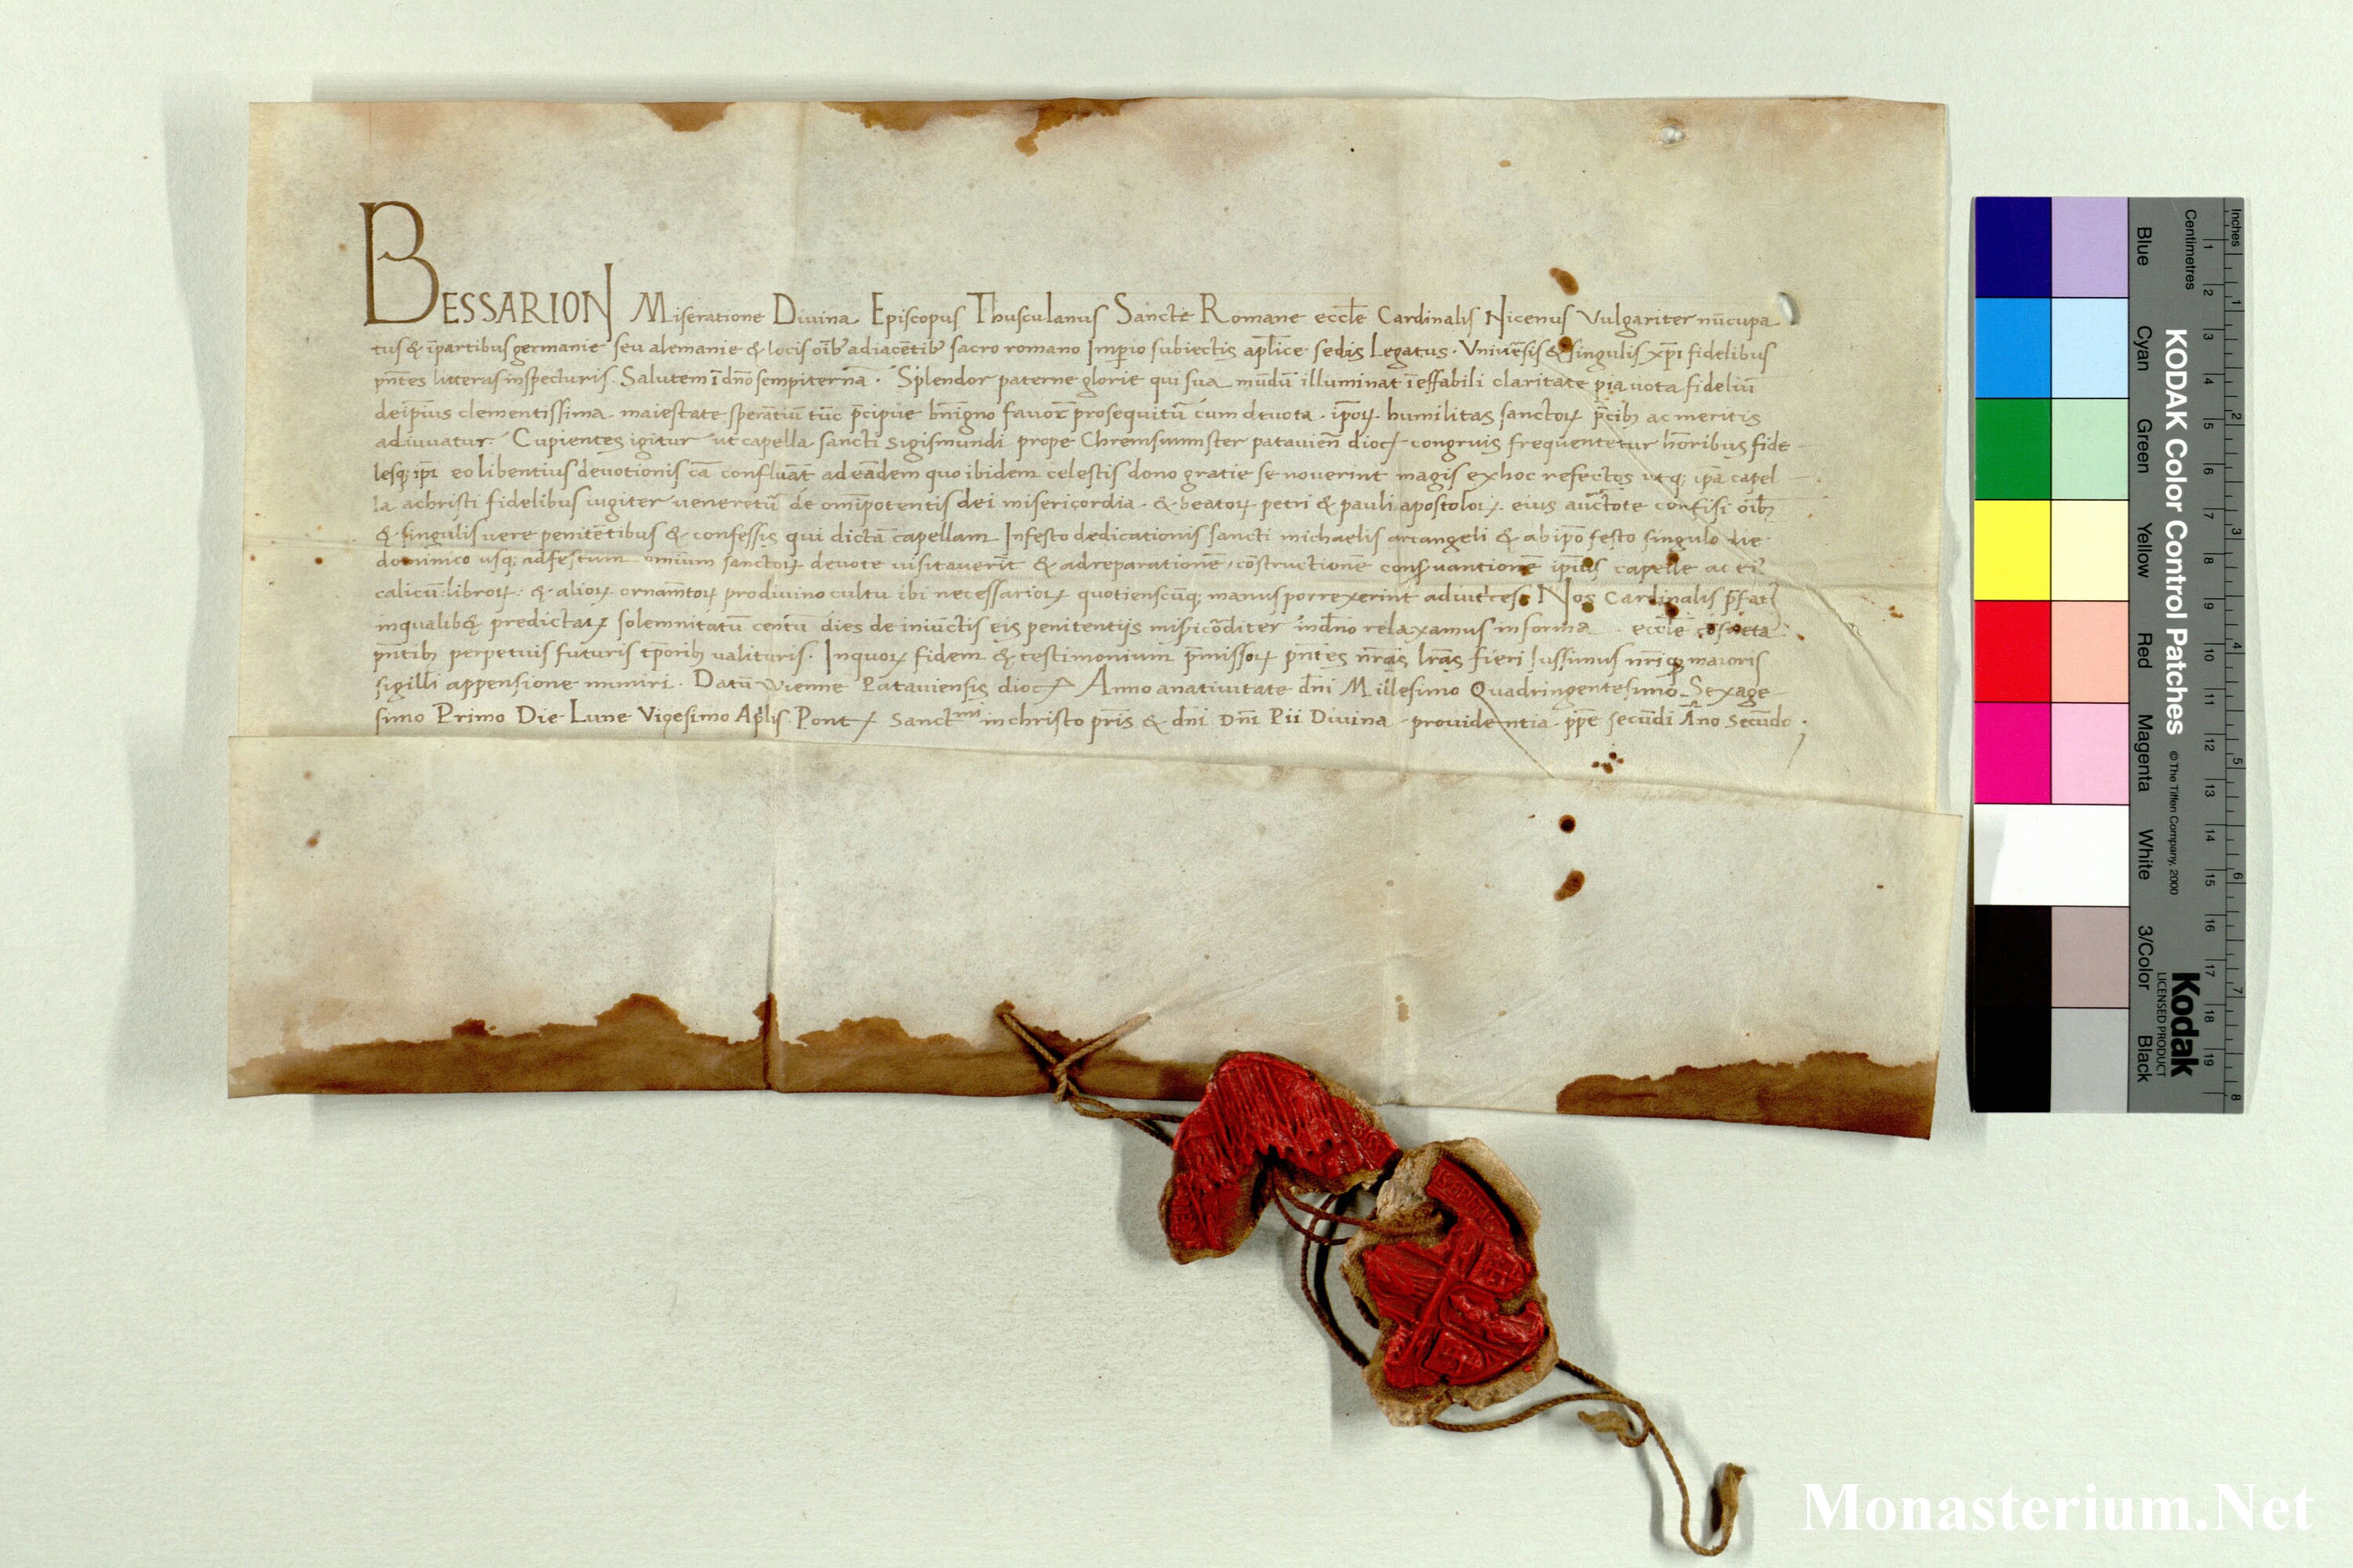 BESSARION Miseratione Diuina Episcopus Thusculanus Sancte Romane eccl̄e Cardinalis Nicenus Vulgariter nūcupa
tus & īpartibus germanie seu alemanie & locis oīb adiacētib sacro romano Imperio subiectis apl̄ice sedis Legatus. Vniuēsis & singulis xp̄i fidelibus
pn̄tes litteras inspecturis. Salutem ī dn̄o sempiternā. Splendor paterne glorie qui sua mūdū illuminat īeffabili claritate pia uota fideliū
deip̄ius clementissima maiestate sperātiū tūc p̄cipue bn̄igno fauor̄ prosequitū cum deuota ip̄oꝝ humilitas sanctoꝝ p̄cib ac meritis
adiuuatur. Cupientes igitur ut capella sancti Sigismundi prope Chremsmunster patauien̄ dioc congruis frequentetur hōoribus fide
lesq; ip̄i eo libentius deuotionis cā confluāt ad eādem quo ibidem celestis dono gratie se nouerint magis ex hoc refectos utq; ip̄a capel
la achristi fidelibus iugiter ueneretū de omīpotentis dei misericordia & beatoꝝ petri & pauli apostoloꝝ eius auctōte confisi oīb
& singulis uere penitētibus & confessis qui dictā capellam Infesto dedicationis sancti michaelis arcangeli & ab ip̄o festo singulo die
dominico usq; adfestum omium sanctoꝝ deuote uisitauerīt & adreparationē, cōstructionē conseruantionē ip̄ius capelle ac ei
calicū: libroꝝ: & alioꝝ ornam̄toꝝ prodiuino cultu ibi necessarioꝝ quotienscūq; manus porrexerint adiut'ces Nos Cardinalis p̄fat
inqualib& predictaꝝ solemnitatū centū dies de iniūctis eis penitentijs misericōditer indn̄o relaxamus informa eccl̄e cōsueta
pn̄tib perpetuis futuris tp̄orib ualituris. Inquoꝝ fidem & testimonium p̄missoꝝ pn̄tes nr̄as lr̄as fieri Iussimus nr̄iq; maioris
sigilli appensione muniri. Datū Wienne Patauiensis dioc Anno anatiuitate dn̄i Millesimo Quadringentesimo Sexage
simo Primo Die Lune Vigesimo Ap̄lis Pont Sanctmi inchristo pr̄is & dn̄i Dn̄i Pii Diuina prouidentia pp̄e secūdi An̄o Secūdo;
Inches
Centimetres
KODAK Color Control Patches
© The Tiffen Company, 2000
Kodak
LICENSED PRODUCT
Blue Cyan Green Yellow Red Magenta White 3/Color Black
1 2 3 4 5 6 7 8 9 10 11 12 13 14 15 16 17 18 19
1 2 3 4 5 6 7 8
Monasterium.Net